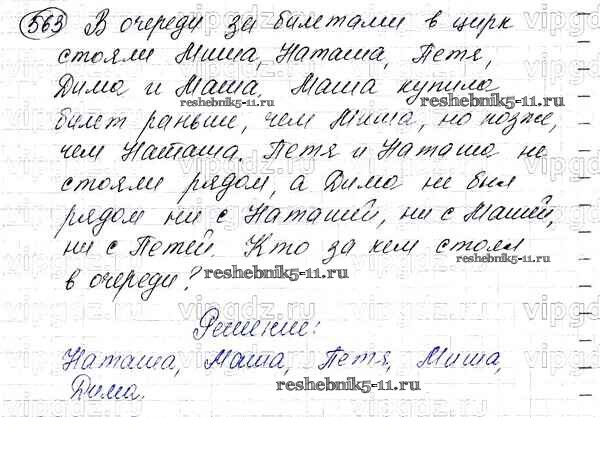 563 В очереди за билетами в цирк
стояли Миша, Наташа, Петя,
Дима и Маша, Маша купила
reshebnik5-11.ru reshebnik5-11.ru
билет раньше, чем Миша, но позже,
чем Наташа. Петя и Наташа не
стояли рядом, а Дима не был
рядом ни с Наташей, ни с Машей,
ни с Петей. Кто за кем стоял
reshebnik5-11.ru
в очереди?
reshebnik5-11.ru
Решение:
Наташа, Маша, Петя, Миша,
Дима.
reshebnik5-11.ru